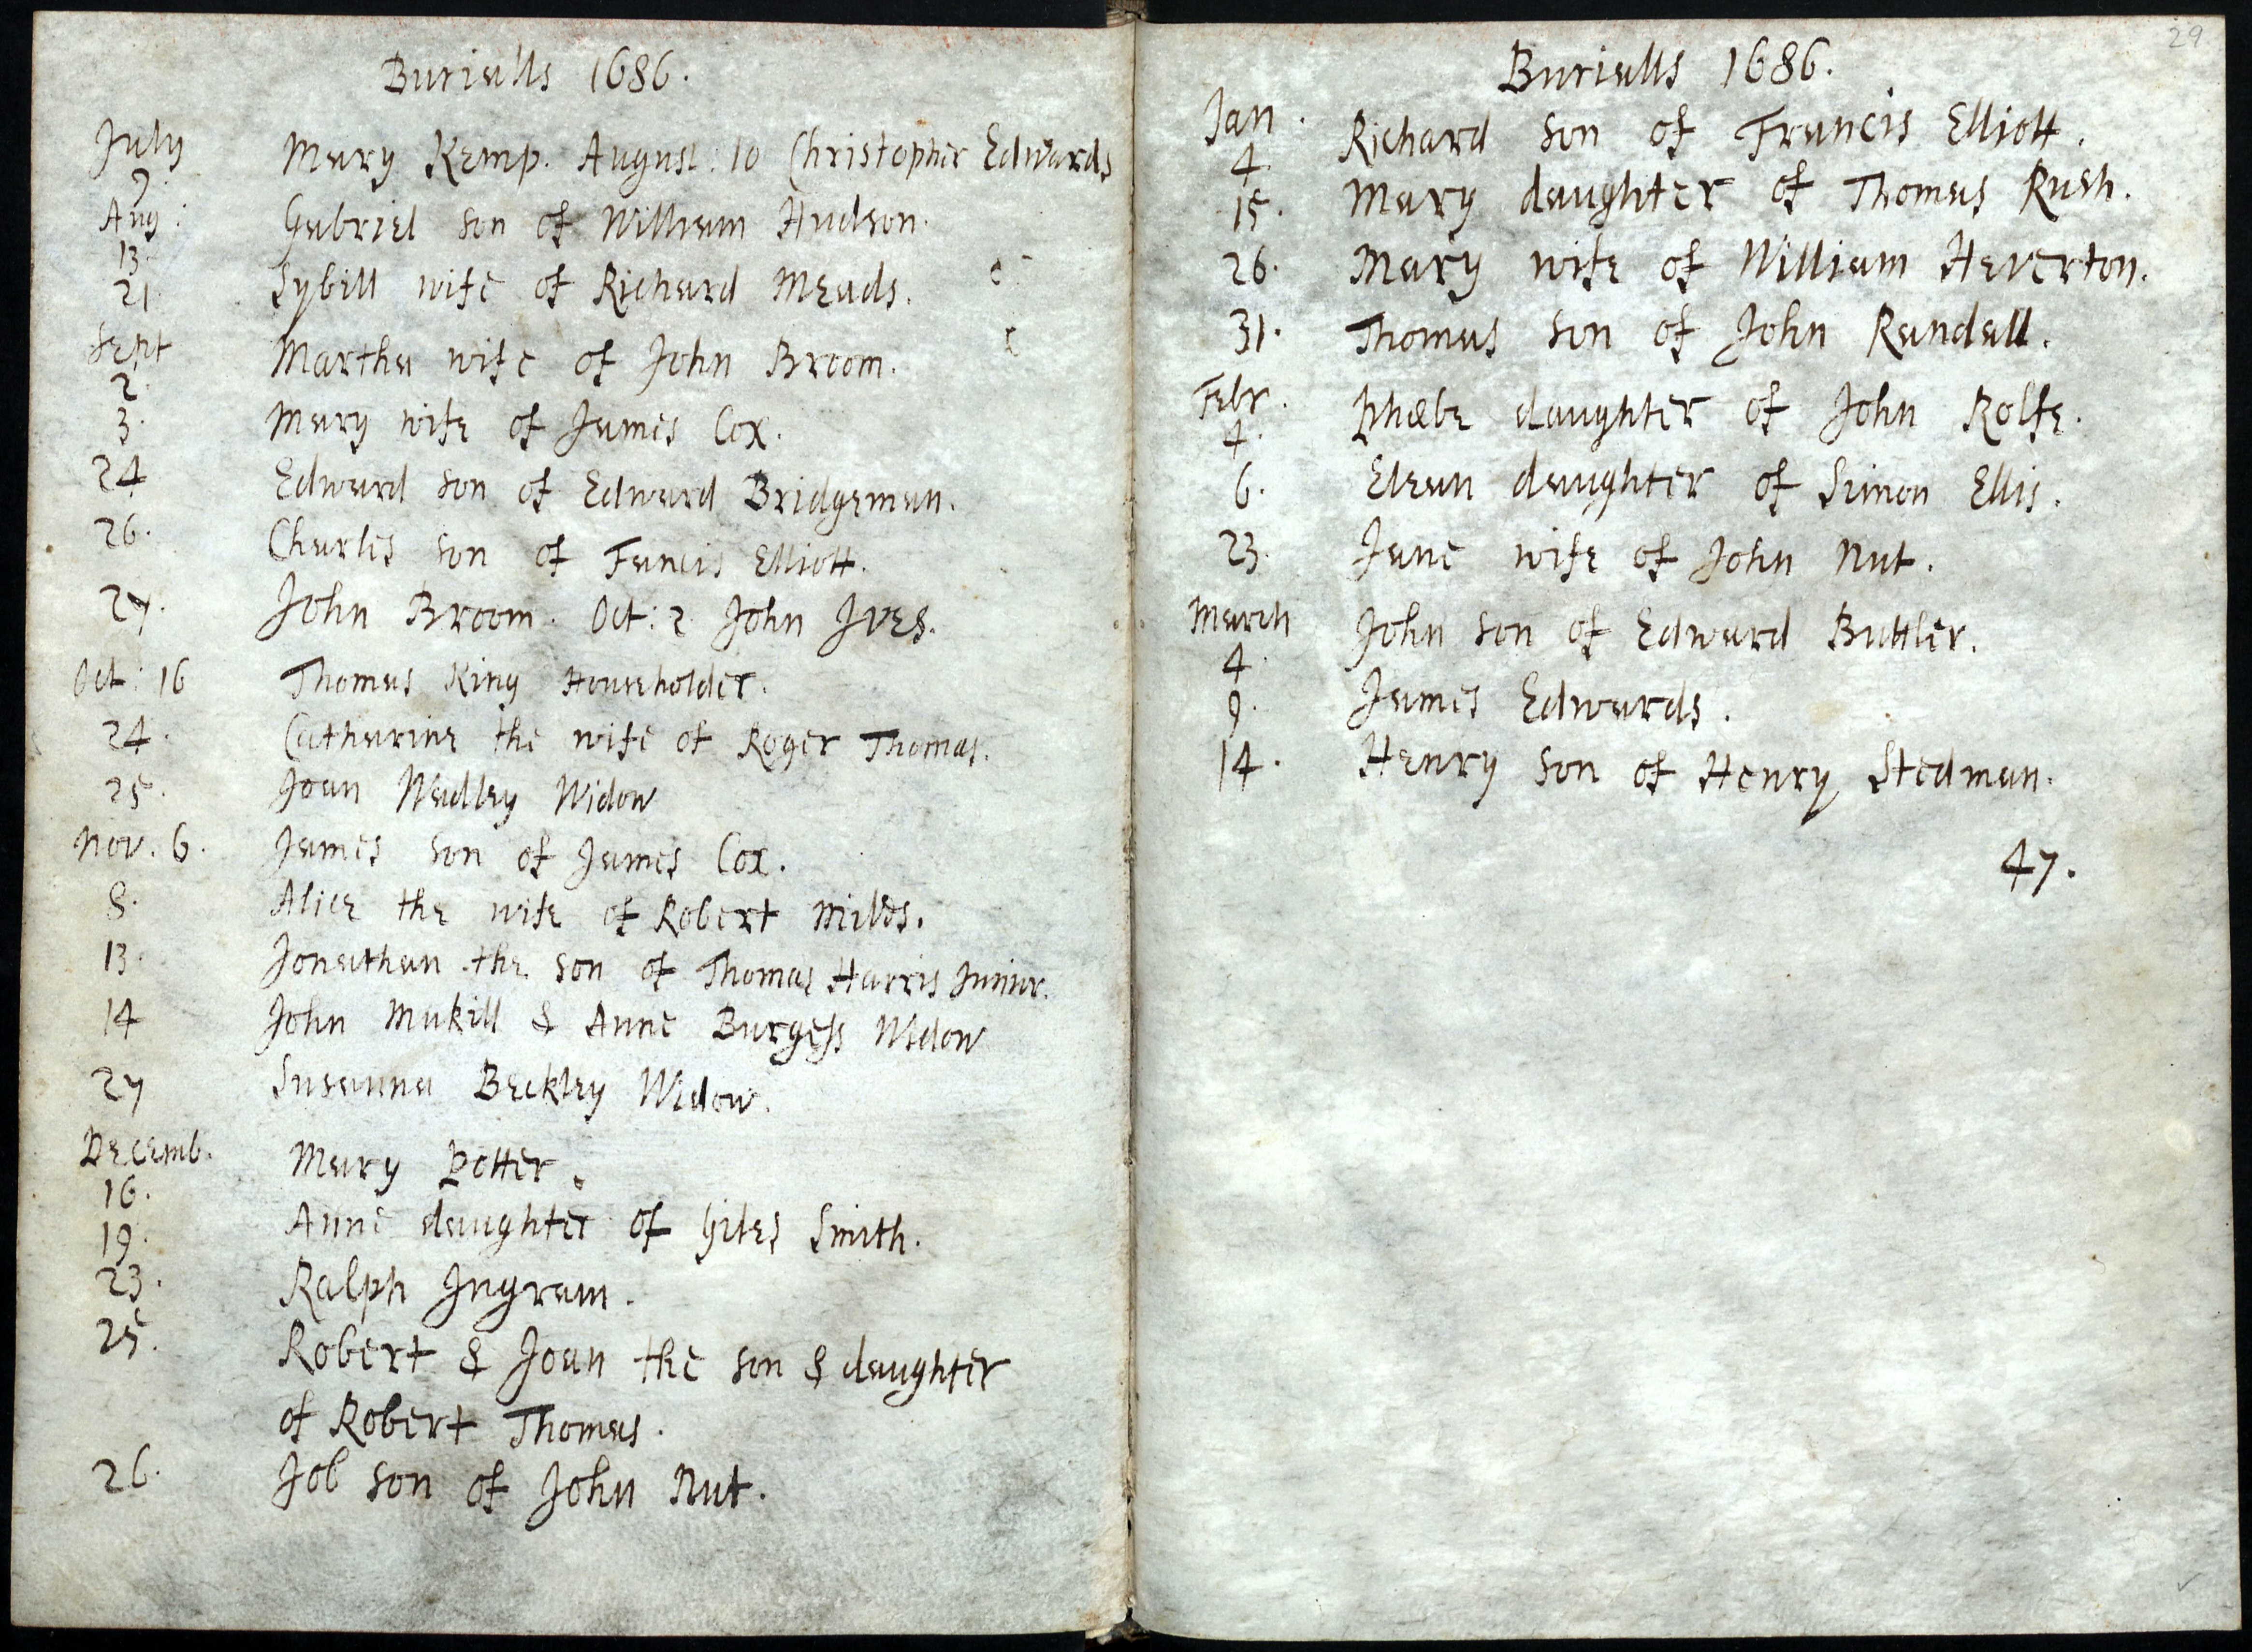 Burialls 1686.
July 9. Mary Kemp. August: 10 Christopher Edwards
Aug: 13. Gabriel son of William Hudson.
21. Sybill wife of Richard Meads.
Sept 2. Martha wife of John Broom.
3. Mary wife of James Cox.
24 Edward son of Edward Bridgeman.
26. Charles son of Fancis Elliott.
27. John Broom. Oct: 2 John Ives.
Oct: 16 Thomas King Householder.
24. Catharine the wife of Roger Thomas.
25. Joan Wadley Widow
Nov. 6. James son of James Cox.
8. Alice the wife of Robert
13. Jonathan the son of Thomas Harris Junior.
14 John Mukill & Anne Burgess Widow
27 Susanna Beckley Widow.
Decemb. 16. Mary Potter.
19. Anne daughter of Giles Smith.
23. Ralph Ingram.
25. Robert & Joan the son & daughter
of Robert Thomas.
26. Job son of John Nut.
29
Burialls 1686.
Jan. 4. Richard son of Francis Elliott.
15. Mary daughter of Thomas Rush.
26. Mary wife of William Heverton.
31. Thomas son of John Randall.
Febr. 4. Phœbe daughter of John Rolfe.
6. Elean daughter of Simon Ellis.
23. Jane wife of John Nut.
March 4. John son of Edward Buttler.
9. James Edwards.
14. Henry son of Henry Stedman.
47.